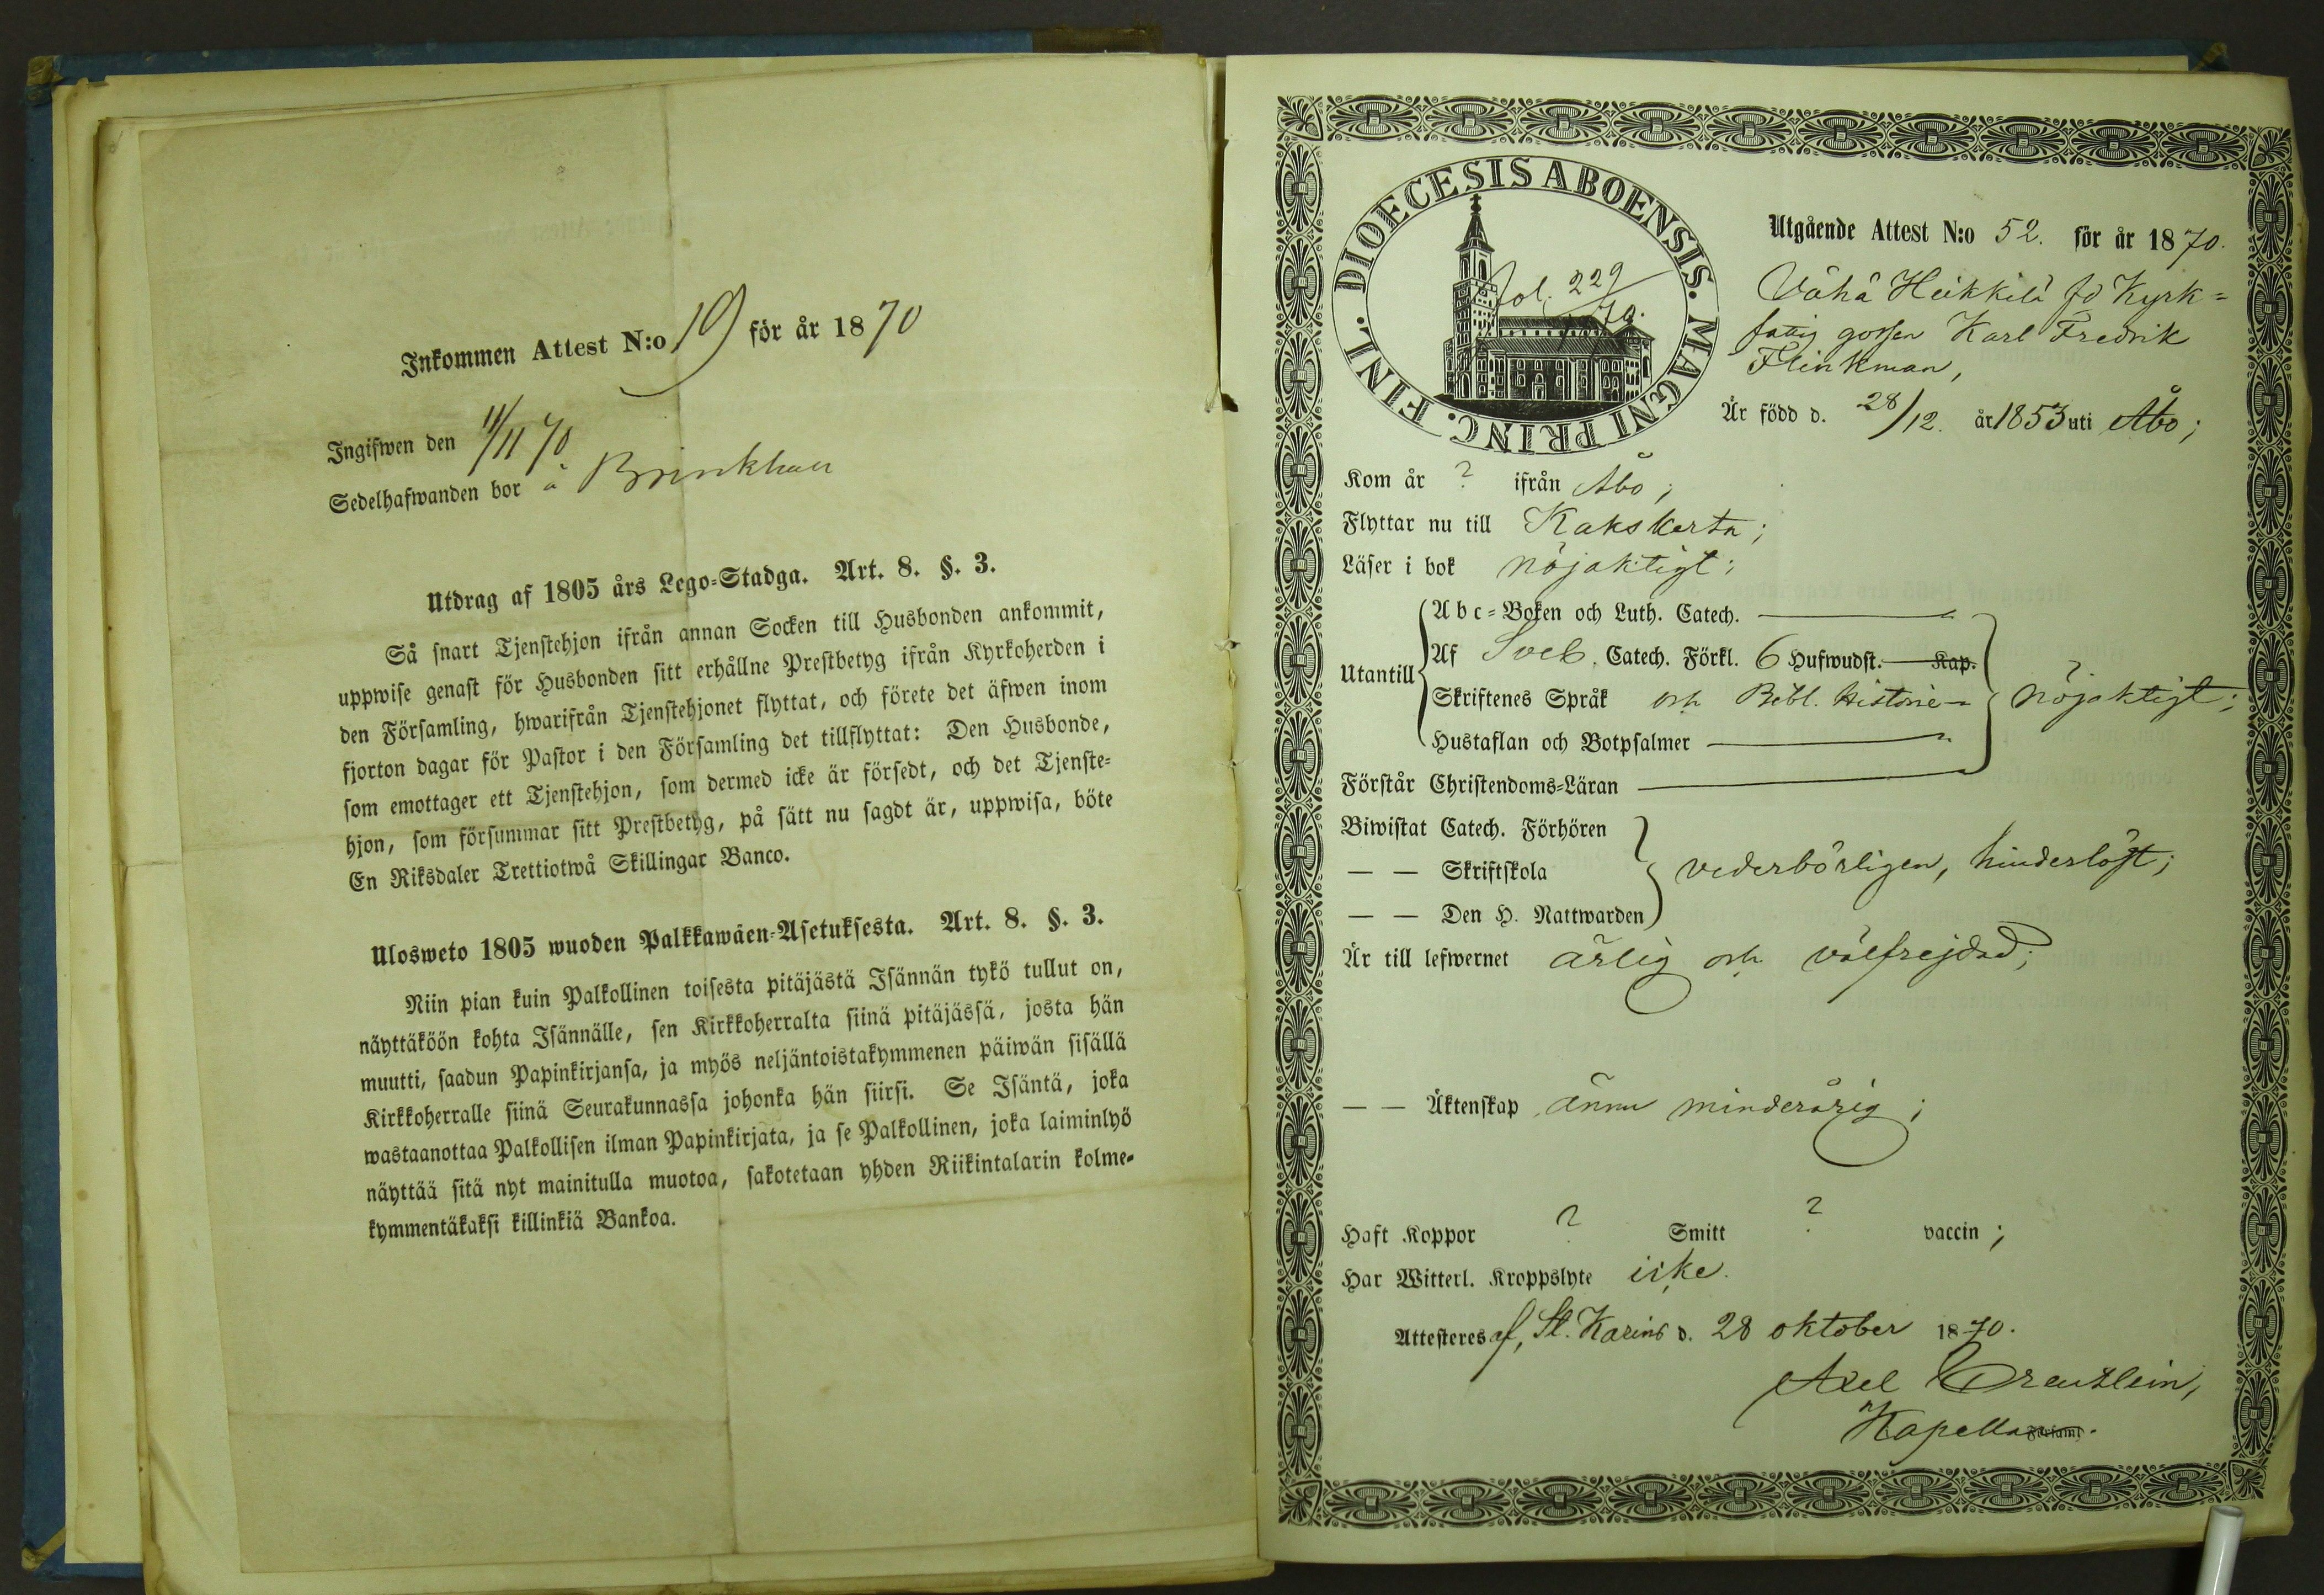 Inkommen Attest N:o 19 för år 1870
Ingifwen den 11/11 70
Sedelhafwanden bor å Brinkhall
Utdrag af 1805 års Lego-Stadga. Art. 8. §. 3.
Så snart Tjenstehjon ifrån annan Socken till Husbonden ankommit,
uppwise genast för Husbonden sitt erhållne Prestbetyg ifrån Kyrkoherden i
den Församling, hwarifrån Tjenstehjonet flyttat, och förete det äfwen inom
fjorton dagar för Pastor i den Församling det tillflyttat: Den Husbonde,
som emottager ett Tjenstehjon, som dermed icke är försedt, och det Tjenste-
hjon, som försummar sitt Prestbetyg, på sätt nu sagdt är, uppwisa, böte
En Riksdaler Trettiotwå Skillingar Banco.
Ulosweto 1805 wuoden Palkkawäen-Asetuksesta. Art. 8. §. 3.
Niin pian kuin Palkollinen toisesta pitäjästä Isännän tykö tullut on,
näyttäköön kohta Isännälle, sen Kirkkoherralta siinä pitäjässä, josta hän
muutti, saadun Papinkirjansa, ja myös neljäntoistakymmenen päiwän sisällä
Kirkkoherralle siinä Seurakunnassa johonka hän siirsi. Se Isäntä, joka
wastaanottaa Palkollisen ilman Papinkirjata, ja se Palkollinen, joka laiminlyö
näyttää sitä nyt mainitulla muotoa, sakotetaan yhden Riikintalarin kolme-
kymmentäkaksi killinkiä Bankoa.
DIOECESIS ABOENSIS. MAGNI PRINC. FINL.
fol. 229
Utgående Attest N:o 52. för år 1870.
Vähä Heikkilä fd Kyrk=
fattig gossen Karl Fredrik
Flinkman,
Är född d. 28/12. år 1853 uti Åbo;
Kom år ? ifrån Åbo;
Flyttar nu till Kakskerta;
Läser i bok nöjaktigt;
Utantill
Abc=Boken och Luth. Catech.
Af Sveb. Catech. Förkl. 6 Hufwudst. Kap.
Skriftenes Språk och Bibl. Historie
Hustaflan och Botpsalmer
nöjaktigt;
Förstår Christendoms=Läran
Biwistat Catech. Förhören
— — Skriftskola
— — Den H. Nattwarden
vederbörligen, hinderlöst;
Är till lefwernet ärlig och välfrejdad;
— — Äktenskap ännu minderårig;
Haft Koppor ? Smitt ? vaccin;
Har Witterl. Kroppslyte icke.
Attesteres af, St. Karins d. 28 oktober 1870.
Axel Creutlein,
Kapellan Församl.